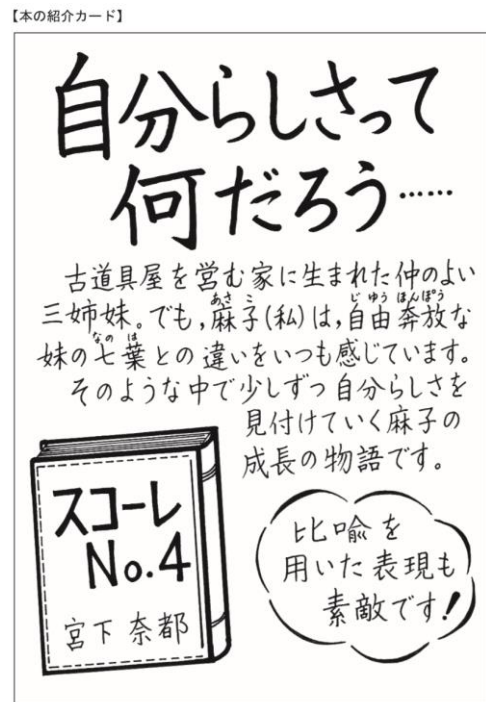 【本の紹介カード】
自分らしさって
何だろう……
古道具屋を営む家に生まれた仲のよい
三姉妹。でも,麻子(私)は,自由奔放な
あさこ
じゆうほんぽう
妹の七葉との違いをいつも感じています。
なのは
そのような中で少しずつ自分らしさを
見付けていく麻子の
成長の物語です。
スコーレ
No.4
宮下 奈都
比喩を
用いた表現も
素敵です!